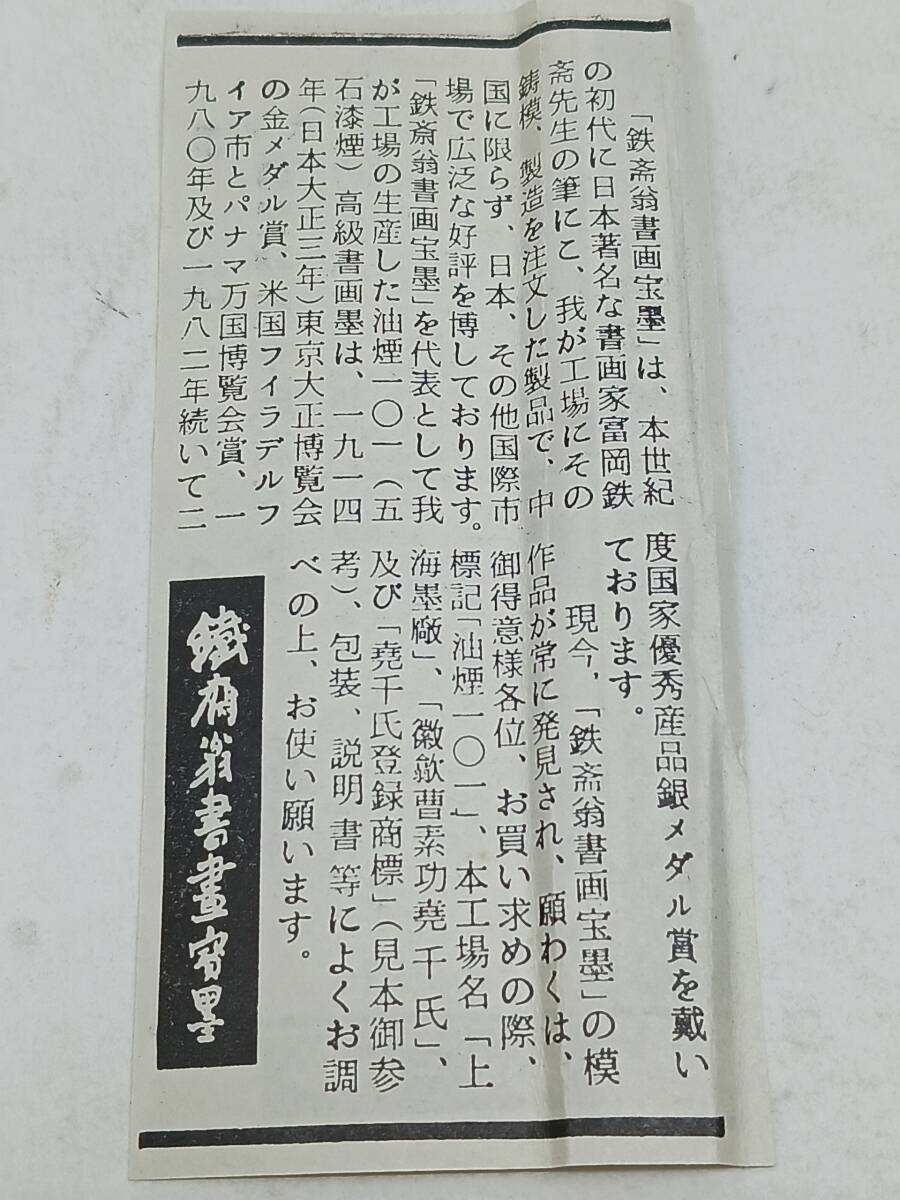 「鉄斎翁書画宝墨」は、本世紀
の初代に日本著名な書画家富岡鉄
斎先生の筆にこ、我が工場にその
鋳模、製造を注文した製品で、中
国に限らず、日本、その他国際市
場で広泛な好評を博しております。
「鉄斎翁書画宝墨」を代表として我
が工場の生産した油煙一〇一（五
石漆煙）高級書画墨は、一九一四
年（日本大正三年）東京大正博覧会
の金メダル賞、米国フィラデルフ
イア市とパナマ万国博覧会賞、一
九八〇年及び一九八二年続いて二
度国家優秀産品銀メダル賞を戴い
ております。
現今，「鉄斎翁書画宝墨」の模
作品が常に発見され、願わくは、
御得意様各位、お買い求めの際、
標記「油煙一〇一」、本工場名「上
海墨廠」、「徽歙曹素功堯千氏」、
及び「堯千氏登録商標」（見本御参
考）、包装、説明書等によくお調
べの上、お使い願います。
鐵斎翁書畫寳墨